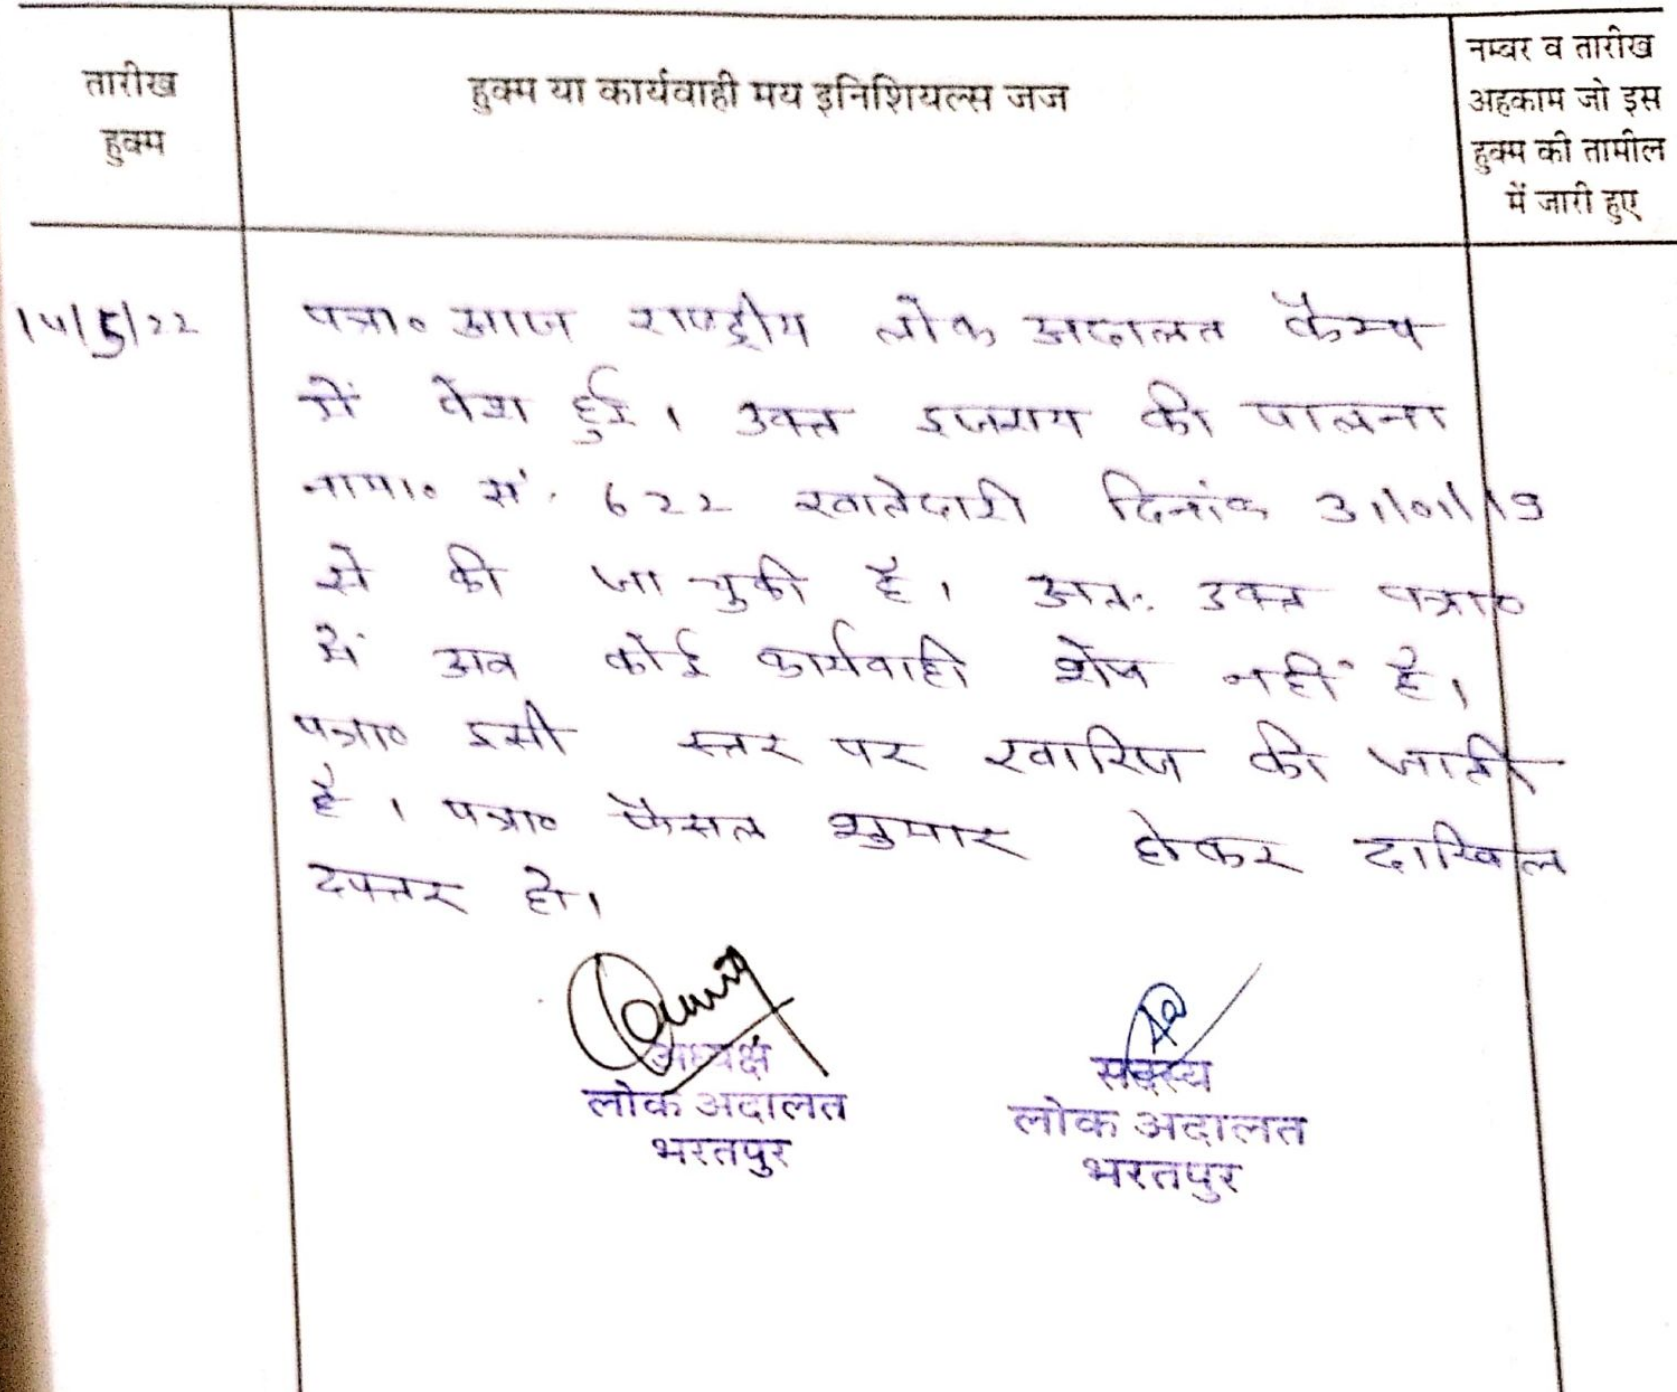 तारीख
हुक्म
हुक्म या कार्यवाही मय इनिशियल्स जज
नम्बर व तारीख
अहकाम जो इस
हुक्म की तामील
में जारी हुए
14/5/22
पत्रा० आज राष्ट्रीय लोक अदालत कैम्प
में पेश हुई। उक्त इजराय की पालना
नामा० सं. 622 खातेदारी दिनांक 31/01/19
से की जा चुकी है। अतः उक्त पत्रा०
में अब कोई कार्यवाही शेष नहीं है।
पत्रा० इसी स्तर पर खारिज की जाती
है। पत्रा० फैसल शुमार होकर दाखिल
दफ्तर हो।
अध्यक्ष
लोक अदालत
भरतपुर
सदस्य
लोक अदालत
भरतपुर